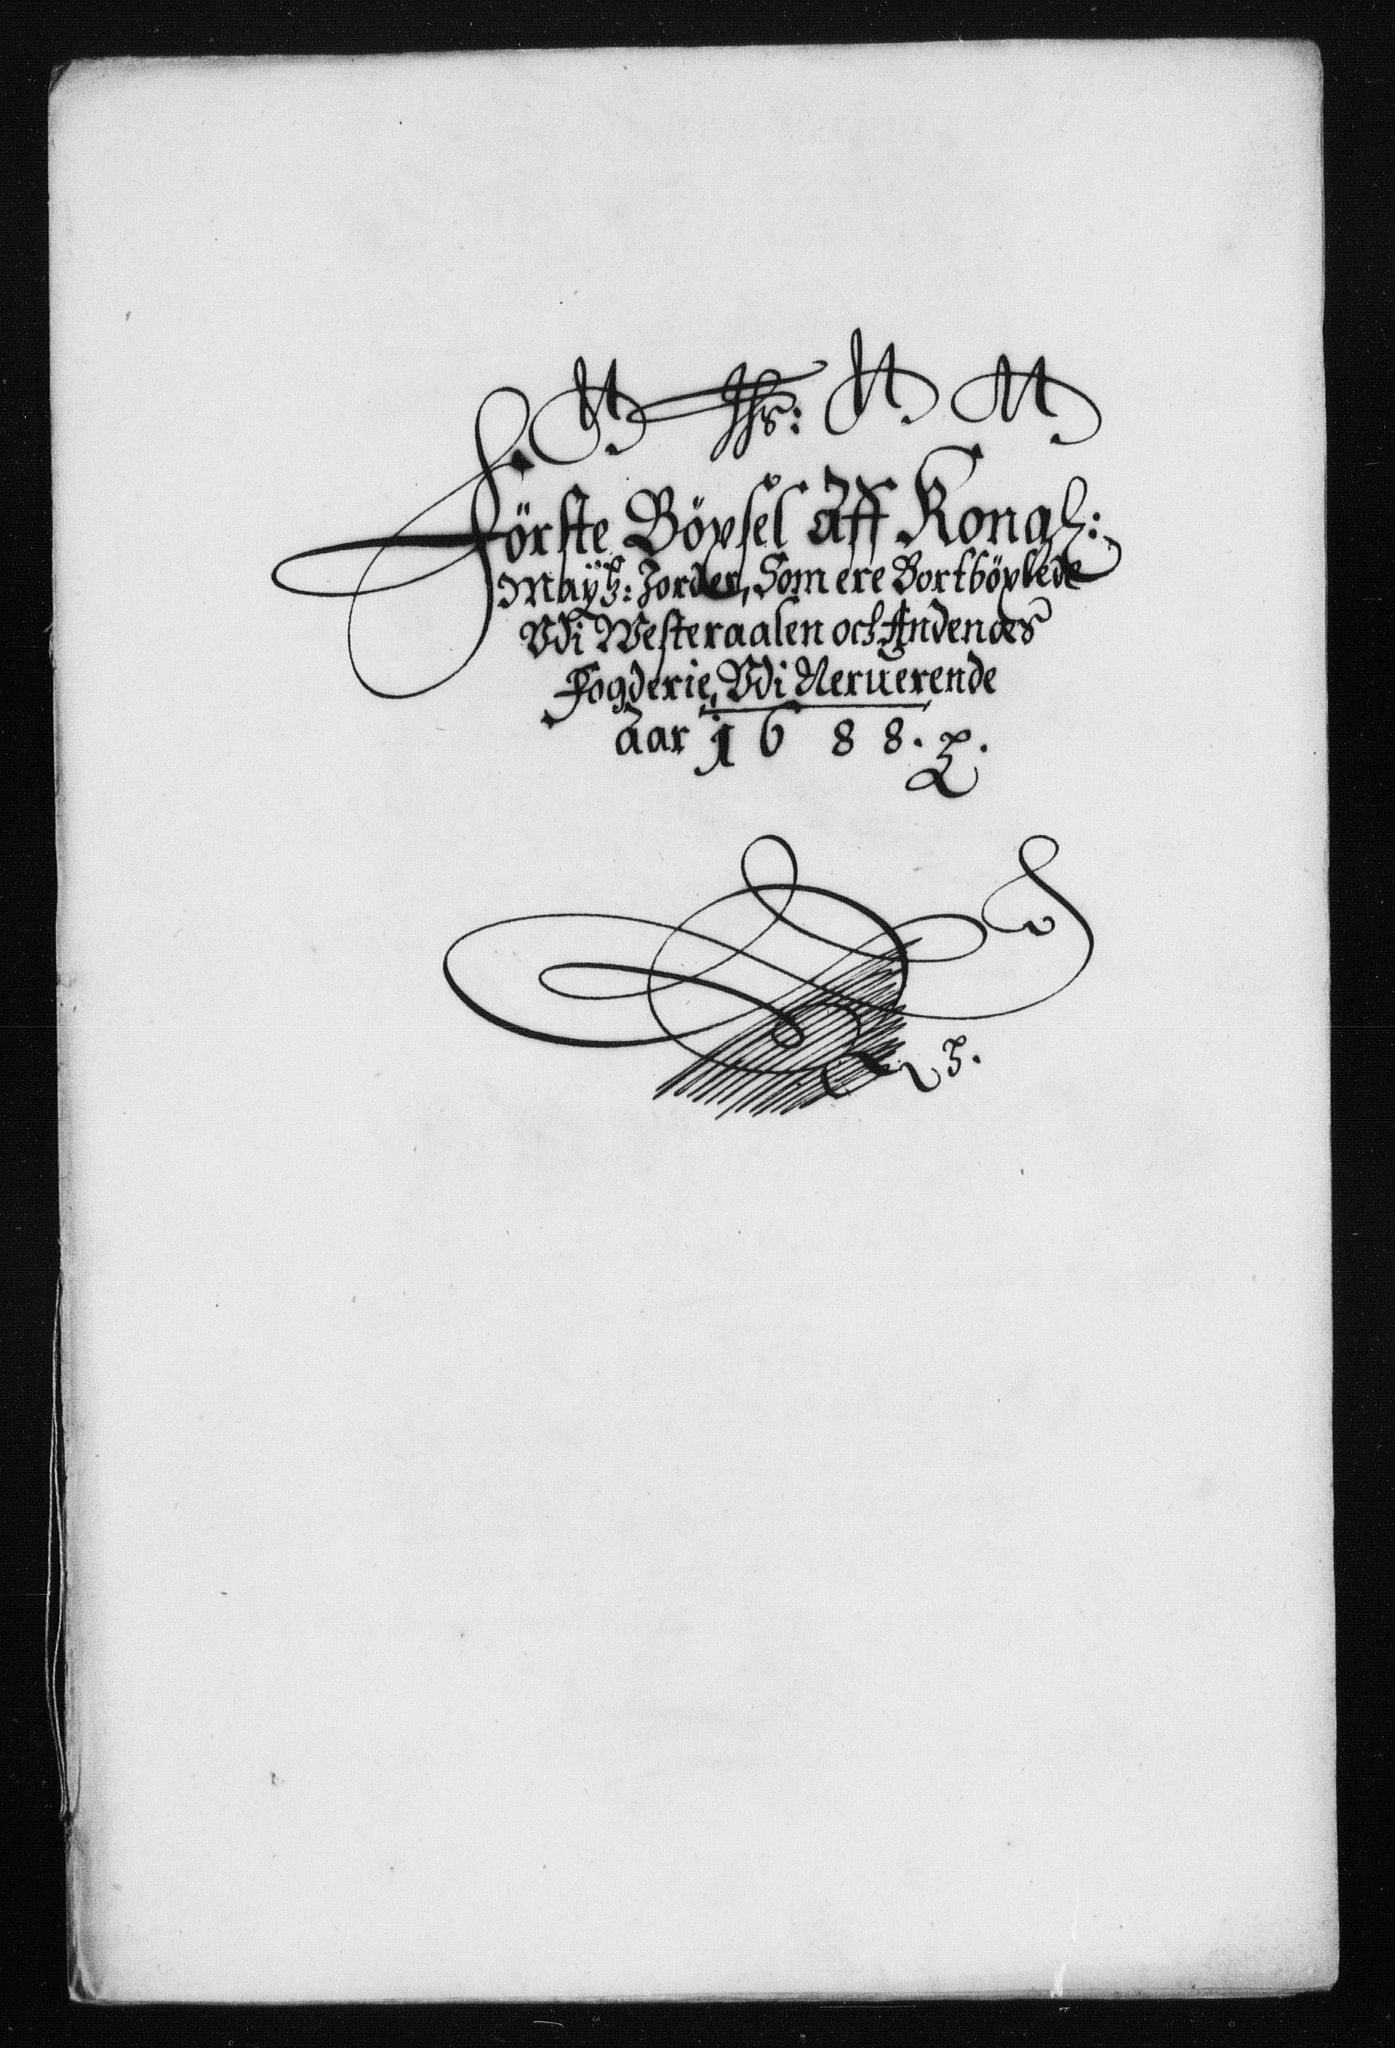 Förste Böxsel Aff Kongl:
Mayts: Jorder, Som ere Bortböxlede
Vdi Westeraalen och Andenæs
Fogderie, Vdi Neruerende
Aar 1688.